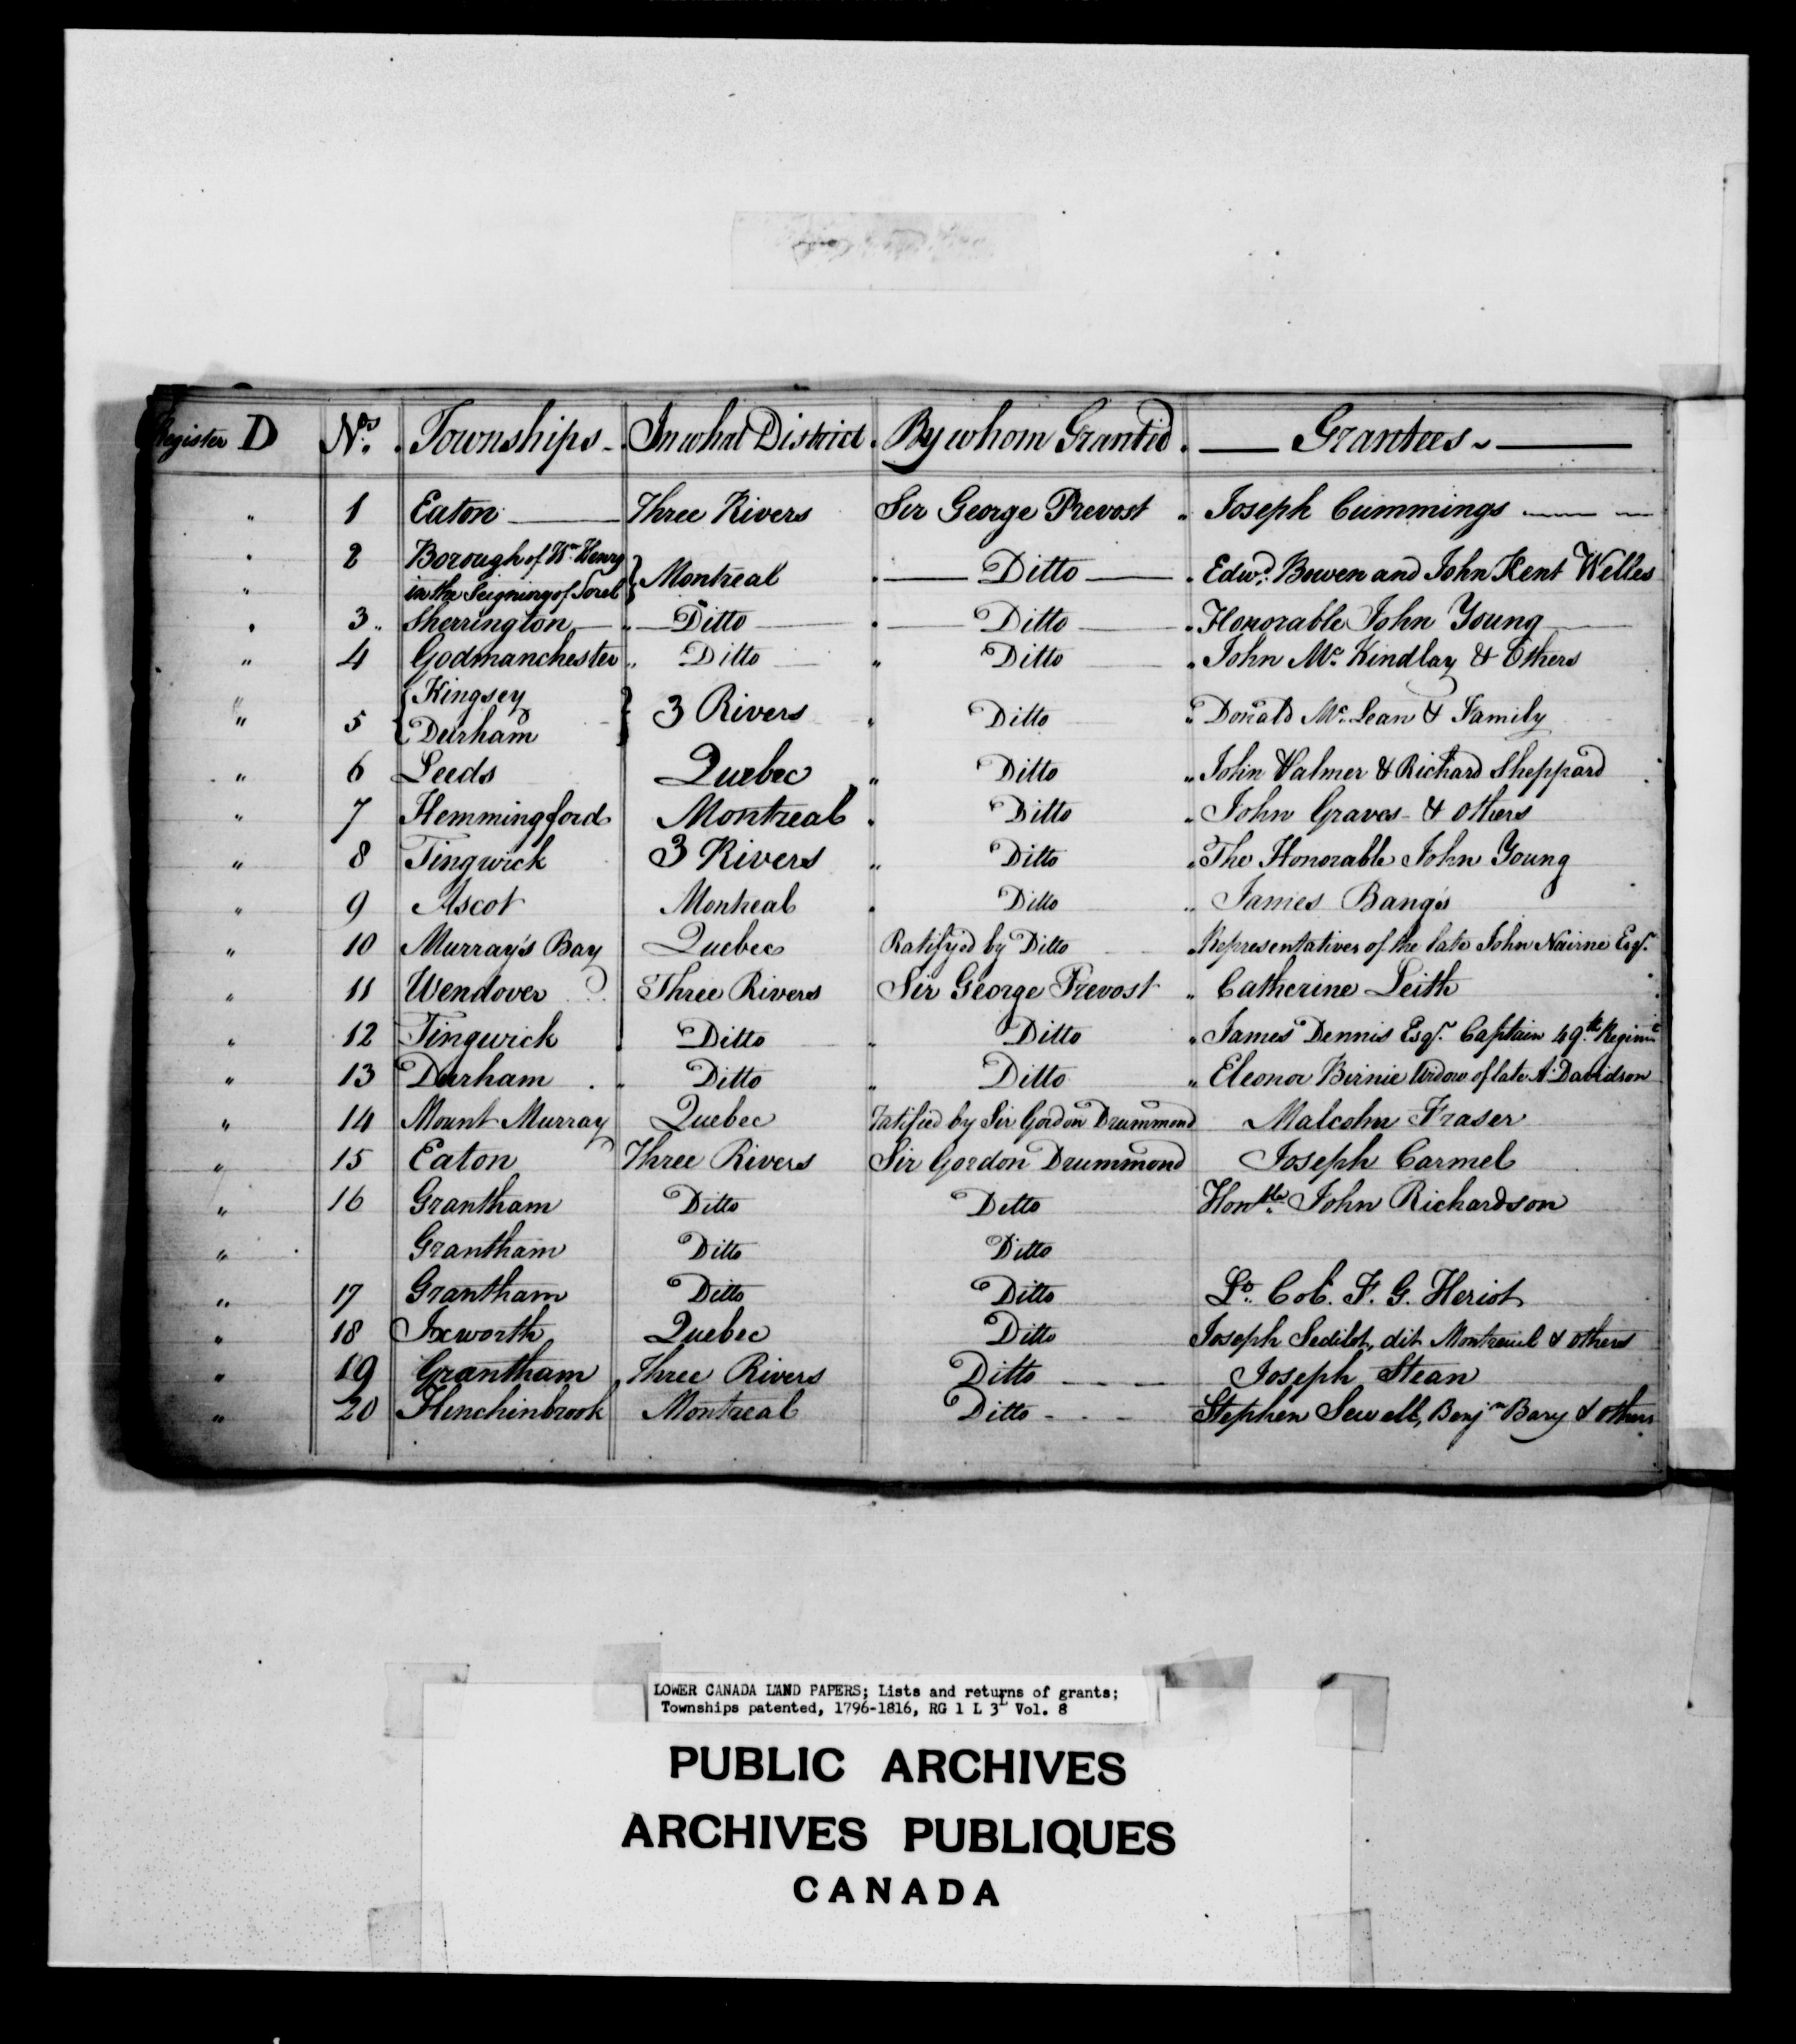 Register D Nos. Townships In what District By whom Granted Grantees
" 1 Eaton Three Rivers Sir George Prevost " Joseph Cummings
" 2 Borough of Wm. Henry
" in the Seigniory of Sorel } Montreal Ditto Edwd. Bowen and John Kent Welles
" 3 Sherrington " Ditto Ditto Honorable John Young
" 4 Godmanchester " Ditto " Ditto " John Mc. Kindlay & Others
{ Kingsey
" 5 { Durham } 3 Rivers " Ditto " Donald Mc. Lean & Family
" 6 Leeds Quebec " Ditto " John Palmer & Richard Sheppard
" 7 Hemmingford Montreal " Ditto " John Graves & others
" 8 Tingwick 3 Rivers " Ditto " The Honorable John Young
" 9 Ascot Montreal " Ditto " James Bangs
" 10 Murray's Bay Quebec Ratifyed by Ditto " Representatives of the late John Nairne Esqr.
" 11 Wendover Three Rivers Sir George Prevost " Catherine Leith
" 12 Tingwick Ditto " Ditto " James Dennis Esqr. Captain 49th. Regimt
" 13 Durham " Ditto " Ditto " Eleonor Birnie Widow of late A. Davidson
" 14 Mount Murray Quebec ratified by Sir Gordon Drummond Malcolm Fraser
" 15 Eaton Three Rivers Sir Gordon Drummond Joseph Carmel
" 16 Grantham Ditto Ditto Honble. John Richardson
" Grantham Ditto Ditto
" 17 Grantham Ditto Ditto Lt. Col. F. G. Heriot
" 18 Ixworth Quebec Ditto Joseph Sedilot, dit Montreuil & others
" 19 Grantham Three Rivers Ditto Joseph Stean
" 20 Hinchinbrook Montreal Ditto Stephen Sewell, Benjn Bary & others
LOWER CANADA LAND PAPERS; Lists and returns of grants;
Townships patented, 1796-1816, RG 1 L 3L Vol. 8
PUBLIC ARCHIVES
ARCHIVES PUBLIQUES
CANADA